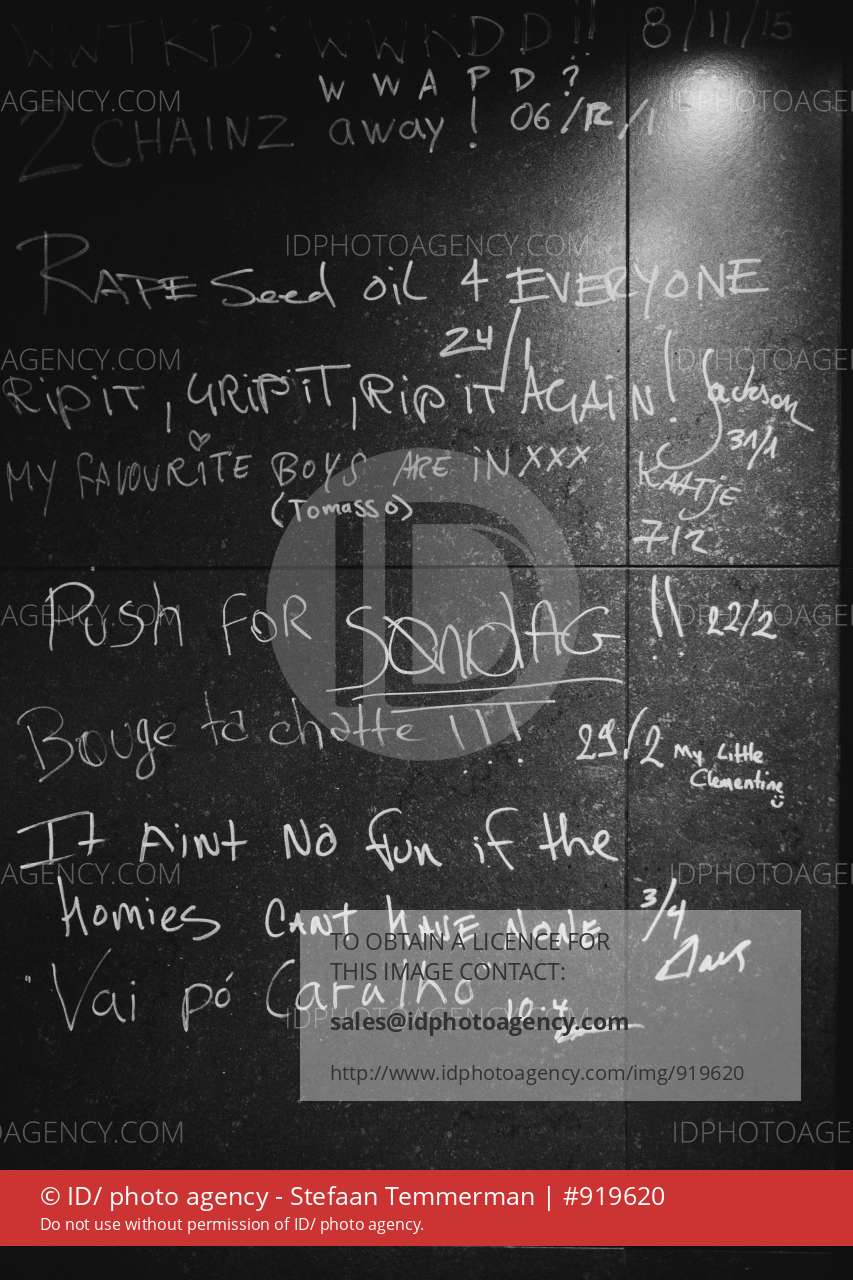 WWTKD: WWKDD!! 8/11/15
WWAPD?
2 CHAINZ away! 06/12/1
IDPHOTOAGENCY.COM
RAPE Seed oil 4 EVERYONE
24/1
RiPiT, GRIPiT, RiPiT AGAiN! Jackson
31/1
MY FAVOURiTE BOYS ARE iN XXX KAATJE
(Tomasso)
7/2
PUSH FOR SONDAG !! 22/2
Bouge ta chatte !!! 29/2 My Little
Clementine
It Aint No fun if the
Homies CANT HAVE NONE 3/4
"Vai pó Caralho" 10.4
TO OBTAIN A LICENCE FOR
THIS IMAGE CONTACT:
sales@idphotoagency.com
http://www.idphotoagency.com/img/919620
© ID/ photo agency - Stefaan Temmerman | #919620
Do not use without permission of ID/ photo agency.